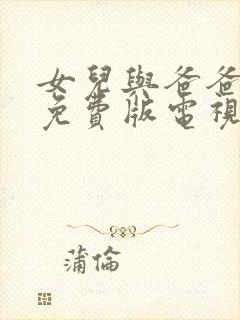 女兒與爸爸
免費版電視
蒲倫